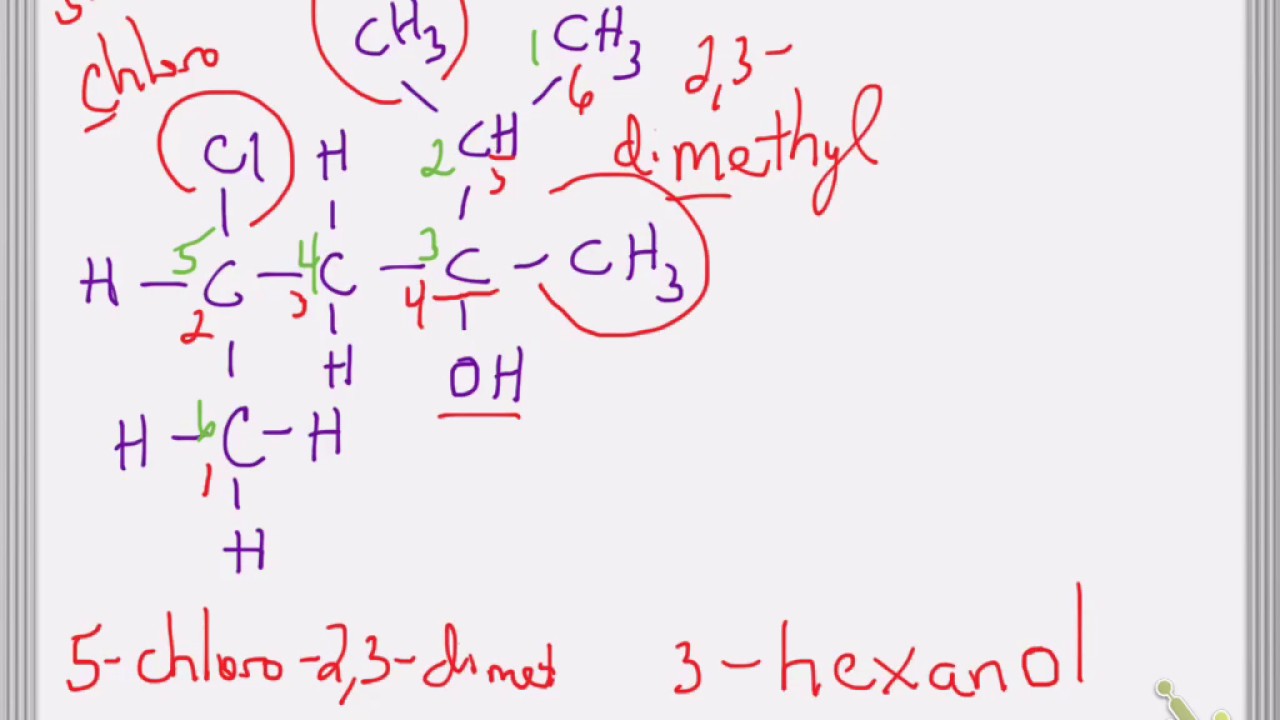 chloro
CH3 1 CH3 2,3-
6
dimethyl
Cl H 2 CH
5
5 4 3
H - C - C - C - CH3
2 3 4
H OH
H - 6 C - H
1
H
5-chloro-2,3-dimet 3-hexanol